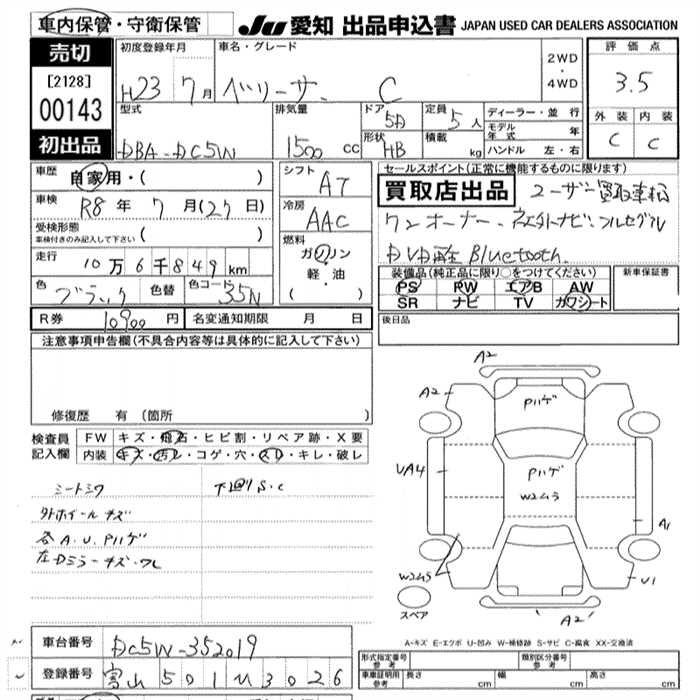 車内保管・守衛保管
JU 愛知 出品申込書 JAPAN USED CAR DEALERS ASSOCIATION
売切
[2128]
00143
初出品
初度登録年月 車名・グレード
H23 7月 ベリーサ C
2WD
・
4WD
評価点
3.5
外装 内装
C C
型式 排気量 ドア 定員
DBA-DC5W 1500 cc 5D 5人
形状 積載
HB kg
ディーラー・並行
モデル年式 年
ハンドル 左・右
車歴 自家用・( )
車検 R8年 7月(27日)
受検形態
車検付きのみ記入して下さい ( )
走行 10万6千849km
色 ブラック 色替 色コード 35N
シフト AT
冷房 AAC
燃料
ガソリン
軽・油
( ・ )
セールスポイント(正常に機能するものに限ります)
買取店出品 ユーザー買取車
ワンオーナー、社外ナビ、フルセグTV
DVD再 Bluetooth
装備品(純正品に限り○をつけてください)
PS PW エアB AW
SR ナビ TV カワシート
新車保証書
R券 10900円 名変通知期限 月 日
後日品
注意事項申告欄(不具合内容等は具体的に記入して下さい)
修復歴 有(箇所 )
検査員記入欄
FW キズ・飛石・ヒビ割・リペア跡・X要
内装 キズ・汚レ・コゲ・穴・スレ・キレ・破レ
シートシワ 下廻りS.C
外ホイールキズ
各A.U.Pハゲ
左Dミラーキズ・ワレ
A2
A2
Pハゲ
UA4
Pハゲ
W2ムラ
A1
W2ムラ
U1
スペア
A2
A-キズ E-エクボ U-凹み W-補修跡 S-サビ C-腐食 XX-交換済
車台番号 DC5W-352019
登録番号 富山 501 U 3026
形式指定番号 参考 類別区分番号 参考
車庫証明用 参考 長さ cm 幅 cm 高さ cm